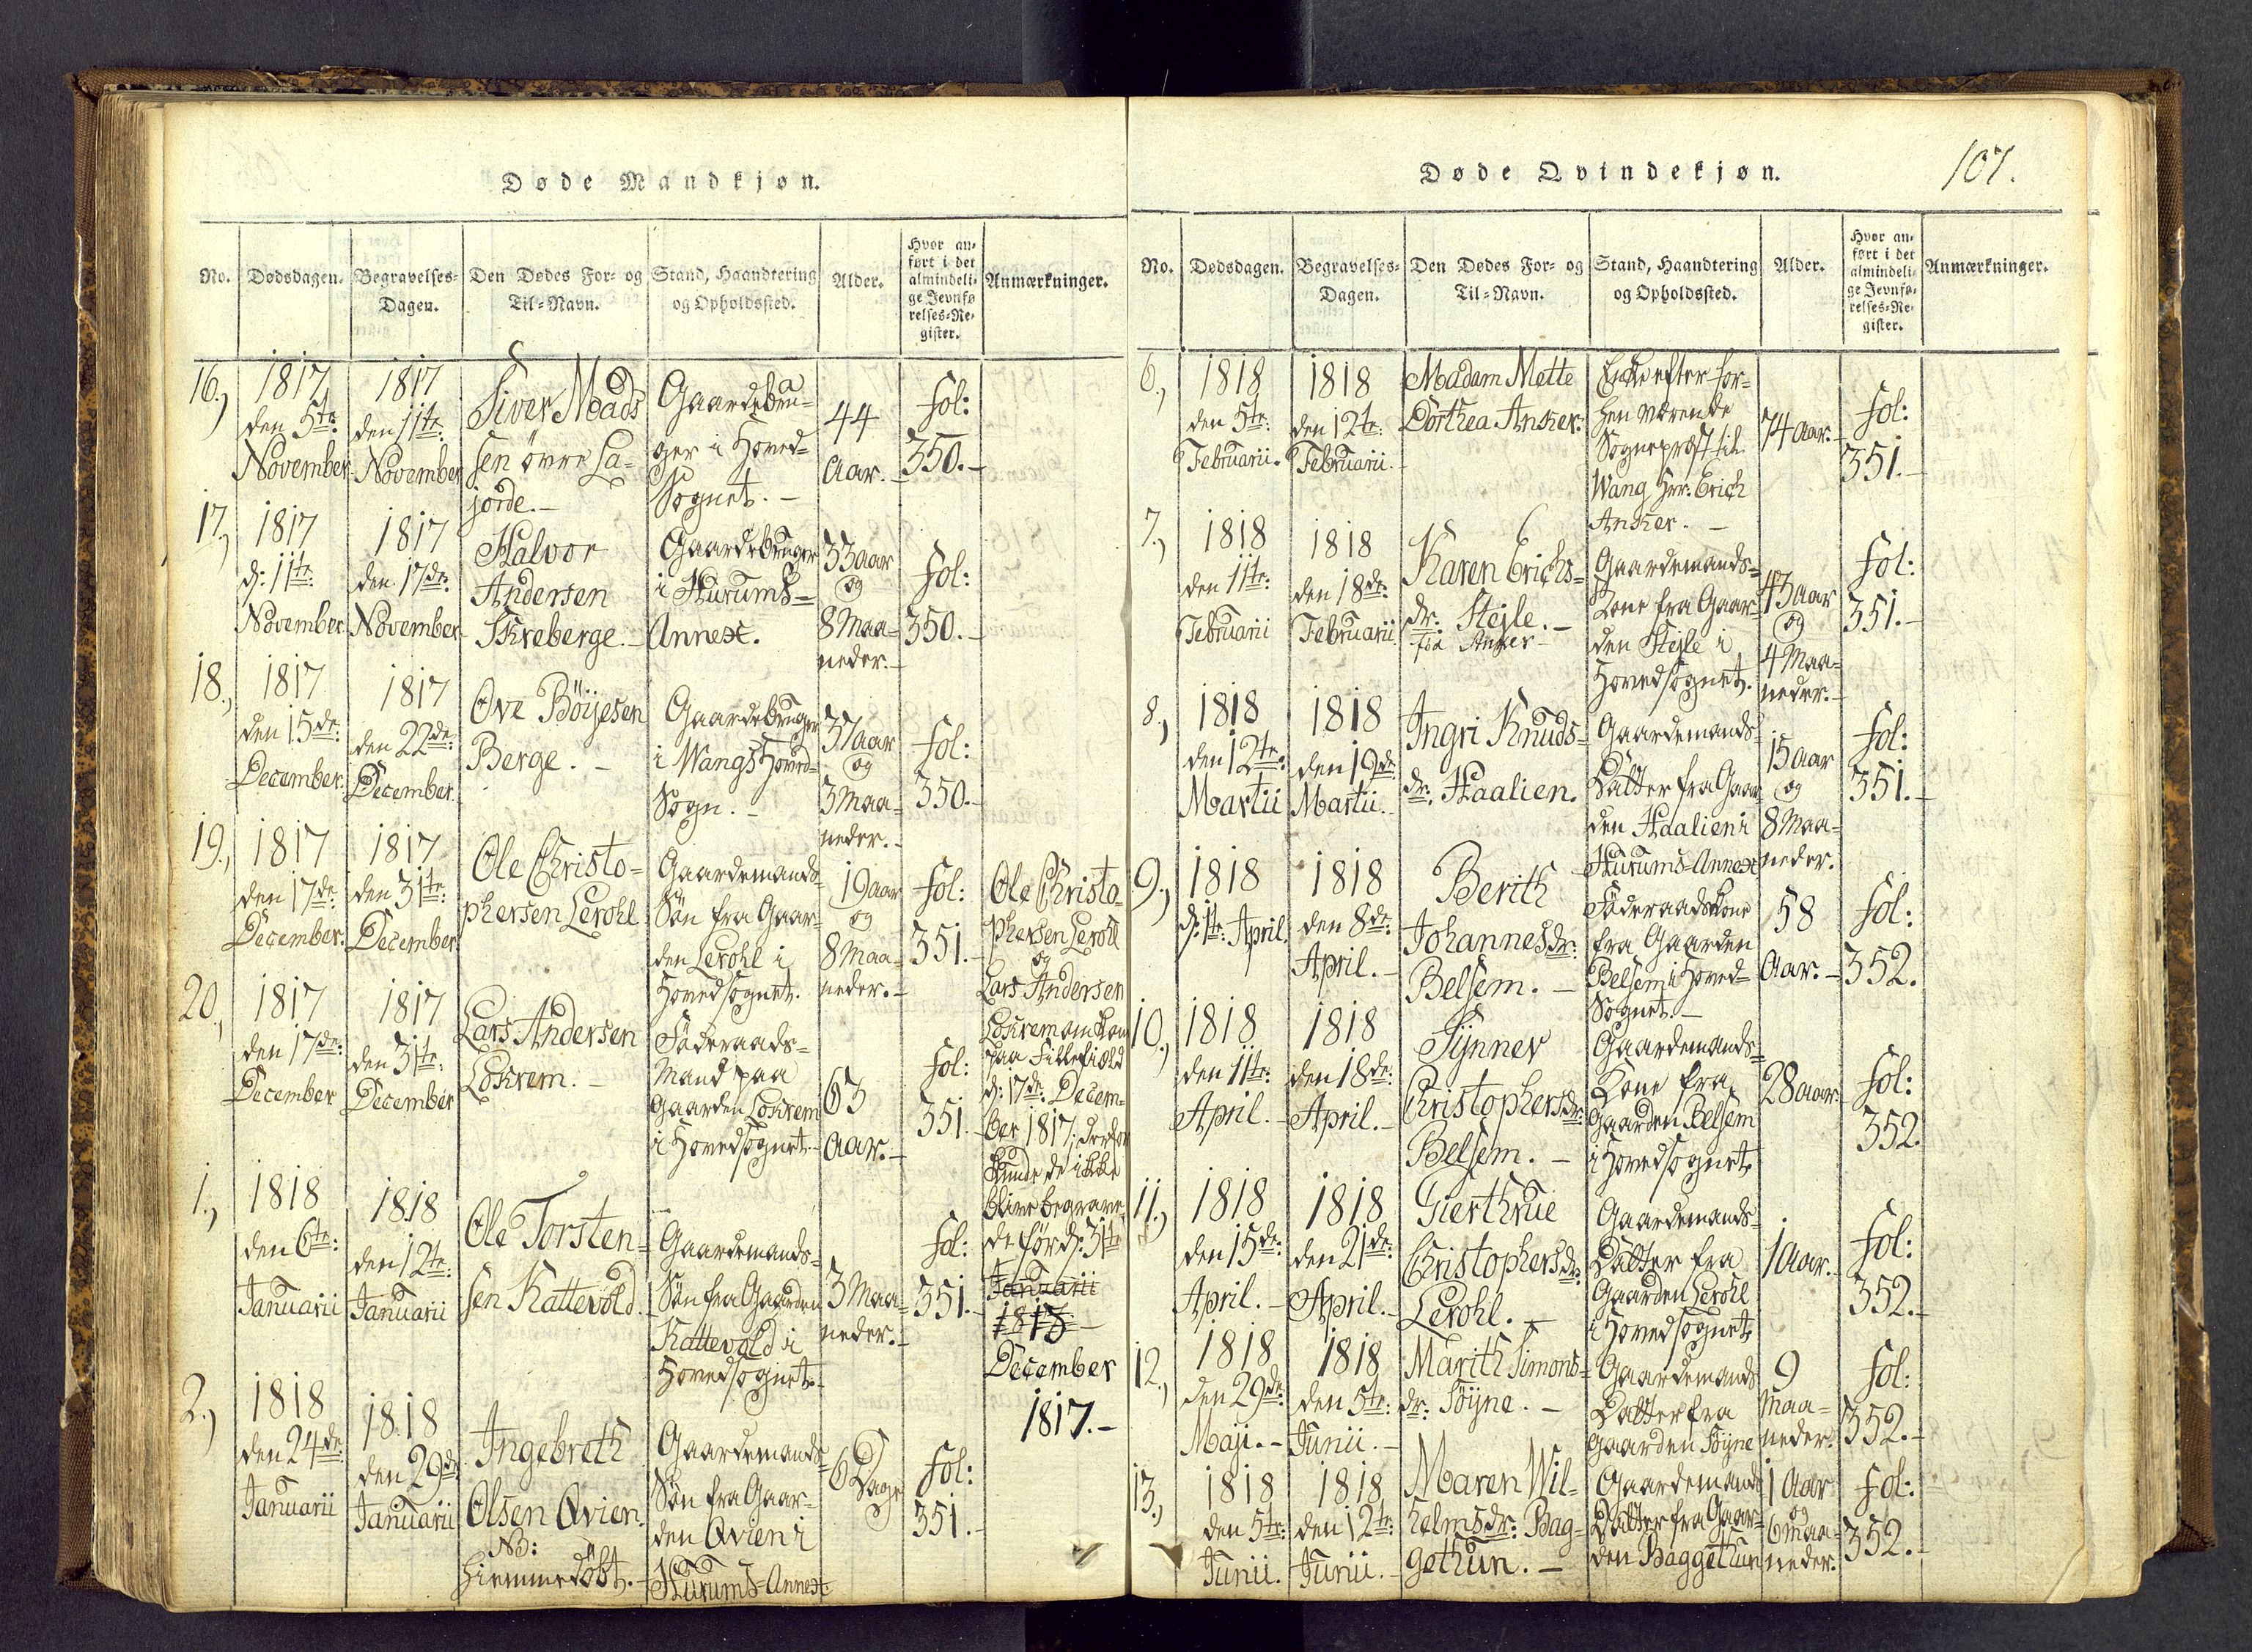 Døde Mandkjøn.
No. Dødsdagen. Begravelses-Dagen. Den Dødes For- og Til-Navn. Stand, Haandtering og Opholdssted. Alder. Hvor anført i det almindelige Jevnførelses-Register. Anmærkninger.
16.,
1817
den 5te:
November
1817
den 11te:
November
Siver Mads
sen övre La-
jorde.-
Gaardebru-
ger i Hoved-
Sognet.-
44
Aar.-
fol:
350.-
17.,
1817
d: 11te:
November
1817
den 17de:
November
Halvor
Andersen
Skreberge.-
Gaardebruger
i Hurums-
Annext.
33 aar
og
8 Maa-
neder.-
fol:
350.-
18.,
1817
den 15de:
December.
1817
den 22de:
December.
Ove Böijesen
Berge.-
Gaardebruger
i Wangs Hoved-
Sogn.-
37 aar
og
3 Maa-
neder.-
fol:
350.-
19.,
1817
den 17de:
December.
1817
den 31te:
December.
Ole Christo-
phersen Lerohl
Gaardemands-
Søn fra Gaar-
den Lerohl i
Hovedsognet.
19 aar
og
8 Maa-
neder.-
fol:
351.-
Ole Christo-
phersen Lerohl
og
Lars Andersen
Lokrem omkom
paa Fillefiæld
d: 17de: Decem-
ber 1817; derfor
kunde de ikke
blive begrave-
de för d: 31te
Januarii
1818
December
1817.-
20.,
1817
den 17de:
December
1817
den 31te:
December
Lars Andersen
Lokrem.-
Föderaads-
Mand paa
Gaarden Lokrem
i Hovedsognet.-
63
Aar.-
fol:
351.-
1.,
1818
den 6te:
Januarii
1818
den 12te:
Januarii
Ole Torsten-
sen Kattevold.
Gaardemands-
Søn fra Gaarden
Kattevold i
Hovedsognet.-
3 Maa-
neder.-
fol:
351.-
2.,
1818
den 24de:
Januarii
1818
den 29de:
Januarii
Ingebreth
Olsen Qvien.
NB:
hiemmedöbt.-
Gaardemands-
Søn fra Gaar-
den Qvien i
Hurums-Annext
6 Dage
fol:
351.-
107.
Døde Qvindekjøn.
No. Dødsdagen. Begravelses-Dagen. Den Dødes For- og Til-Navn. Stand, Haandtering og Opholdssted. Alder. Hvor anført i det almindelige Jevnførelses-Register. Anmærkninger.
6.,
1818
den 5te:
Februarii.
1818
den 12te:
Februarii.-
Madam Mette
Dorthea Anker.
Enke efter for-
hen værende
Sognepræst til
Wang Hrr: Erich
Anker.-
74 aar.-
fol:
351.-
7.,
1818
den 11te:
Februarii
1818
den 18de:
Februarii
Karen Erichs-
dr: Stejle.-
fød Anker
Gaardemands-
Kone fra Gaar-
den Stejle i
Hovedsognet.
43 aar
og
4 Maa-
neder.-
fol:
351.-
8.,
1818
den 12te:
Martii
1818
den 19de
Martii.-
Ingri Knuds-
dr: Haalien.
Gaardemands-
Datter fra Gaar-
den Haalien i
Hurums-Annext
15 aar
og
8 Maa-
neder.
fol:
351.-
9.,
1818
d: 1te: April.
1818
den 8de:
April.-
Berith
Johannesdr:
Belsem.-
Föderaadskone
fra Gaarden
Belsem i Hoved-
Sognet.-
58
Aar.-
fol:
352.
10.,
1818
den 11te:
April.-
1818
den 18de:
April.-
Synnev
Christophersdr:
Belsem.-
Gaardemands-
Kone fra
Gaarden Belsem
i Hovedsognet
28 aar.
fol:
352.
11.,
1818
den 15de:
April.-
1818
den 21de:
April.-
Gierthrue
Christophersdr:
Lerohl.-
Gaardemands-
Datter fra
Gaarden Lerohl
i Hovedsognet
1 Aar.-
fol:
352.-
12.,
1818
den 29de:
Maji.-
1818
den 5te:
Junii.-
Marith Simons-
dr: Söyne.-
Gaardemands
Datter fra
Gaarden Söyne
9
Maa-
neder.
fol:
352.-
13.,
1818
den 5te:
Junii.
1818
den 12te:
Junii.-
Maren Wil-
helmsdr: Bag-
gethun.-
Gaardemands
Datter fra Gaar-
den Baggethun
1 Aar
og
6 Maa-
neder.
fol:
352.-